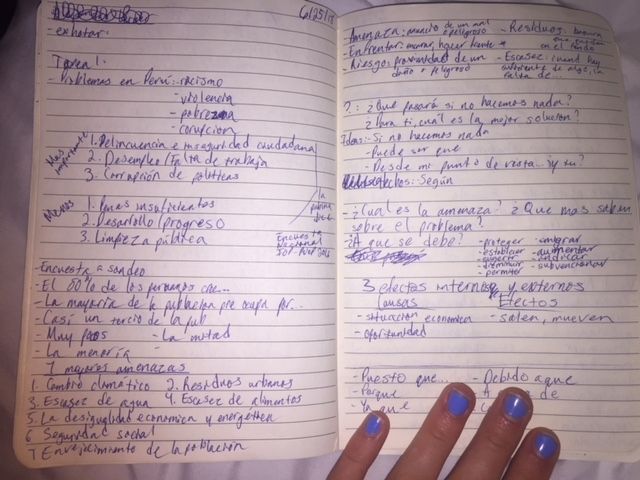 6/25/18
- exhotar:
Tarea 1:
- Problemas en Perú: - racismo
- violencia
- pobreza
- corupcion
Mas importante
1. Delincuencia e inseguridad ciudadana
2. Desempleo/falta de trabajo
3. Corrupción de politicas
Menos
1. Penas insuficientes
2. Desarollo/progreso
3. Limpieza pública
la
Encuesta
Nacional
- Encuesta o sondeo
- El 80% de los peruanos cree...
- La mayoria de la poblacion
- Casi un tercio de la pub
- Muy pocos - La mitad
- La menoría
7 mayores amenazas
1. Cambio climatico 2. Residuos urbanos
3. Escasez de agua 4. Escasez de alimentos
5. La desigualdad economica y energética
6 Seguridad social
7 Envejecimiento de la población
Amenaza: anuncio de un mal o peligroso - Residuos: basura
en el fondo
- Enfrentar: hacer frente
- Riesgo: proximidad de un daño o peligroso - Escasez: cuand hay
suficiente de algo, la
falta de...
?: ¿Qué pasará si no hacemos nada?
¿Para ti, cuál es la mejor solucion?
Ideas: - Si no hacemos nada
- Puede ser que
- Desde mi punto de vista... ¿y tu?
Según
- ¿Cual es la amenaza? ¿Que mas saben
sobre el problema?
¿A que se debe? - proteger - emigrar
- establecer - aumentar
- sugerir - indicar
- disminuir - subvencionar
- permitir
3 efectos internos y externos
Causas Efectos
- situacion economica - salen, mueven
- oportunidad
- Puesto que... - Debido a que
- Porque A de
- Ya que